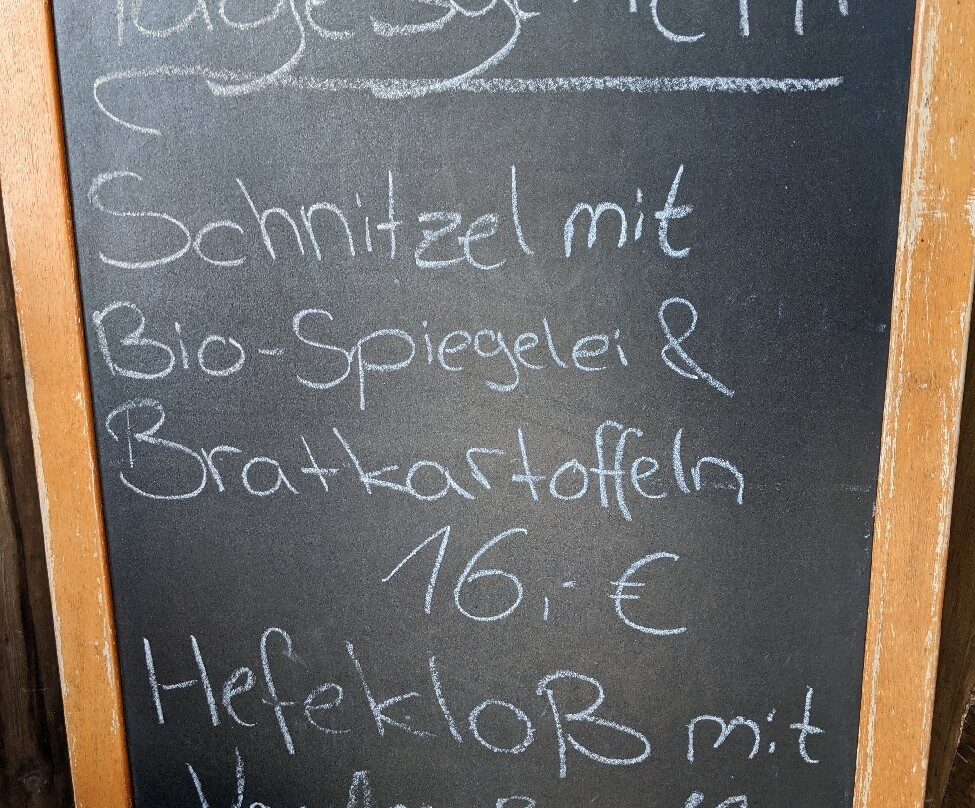 Tagesgericht
Schnitzel mit
Bio-Spiegelei &
Bratkartoffeln
16,- €
Hefekloß mit